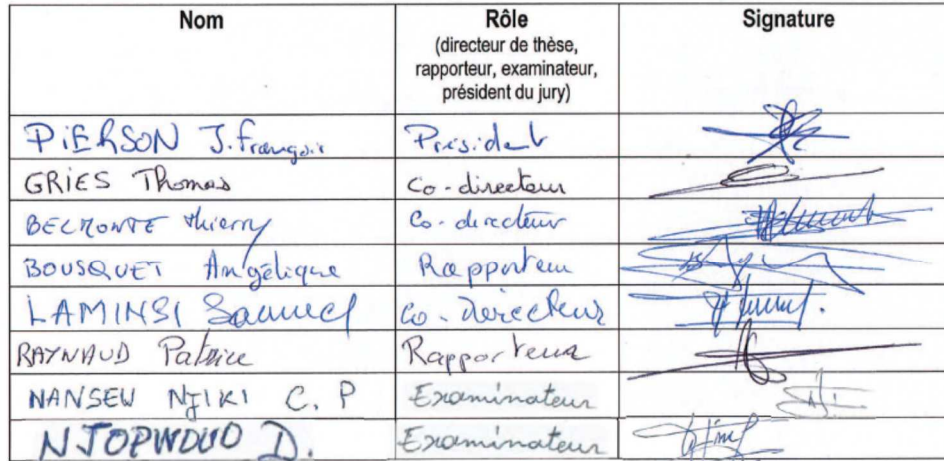 Nom Rôle Signature
(directeur de thèse,
rapporteur, examinateur,
président du jury)
PIERSON J. françois Président
GRIES Thomas Co-directeur
BELMONTE Thierry Co-directeur
BOUSQUET Angélique Rapporteur
LAMINSI Samuel Co-directeur
RAYNAUD Patrice Rapporteur
NANSEU NJIKI C. P Examinateur
NJOPWOUO D. Examinateur